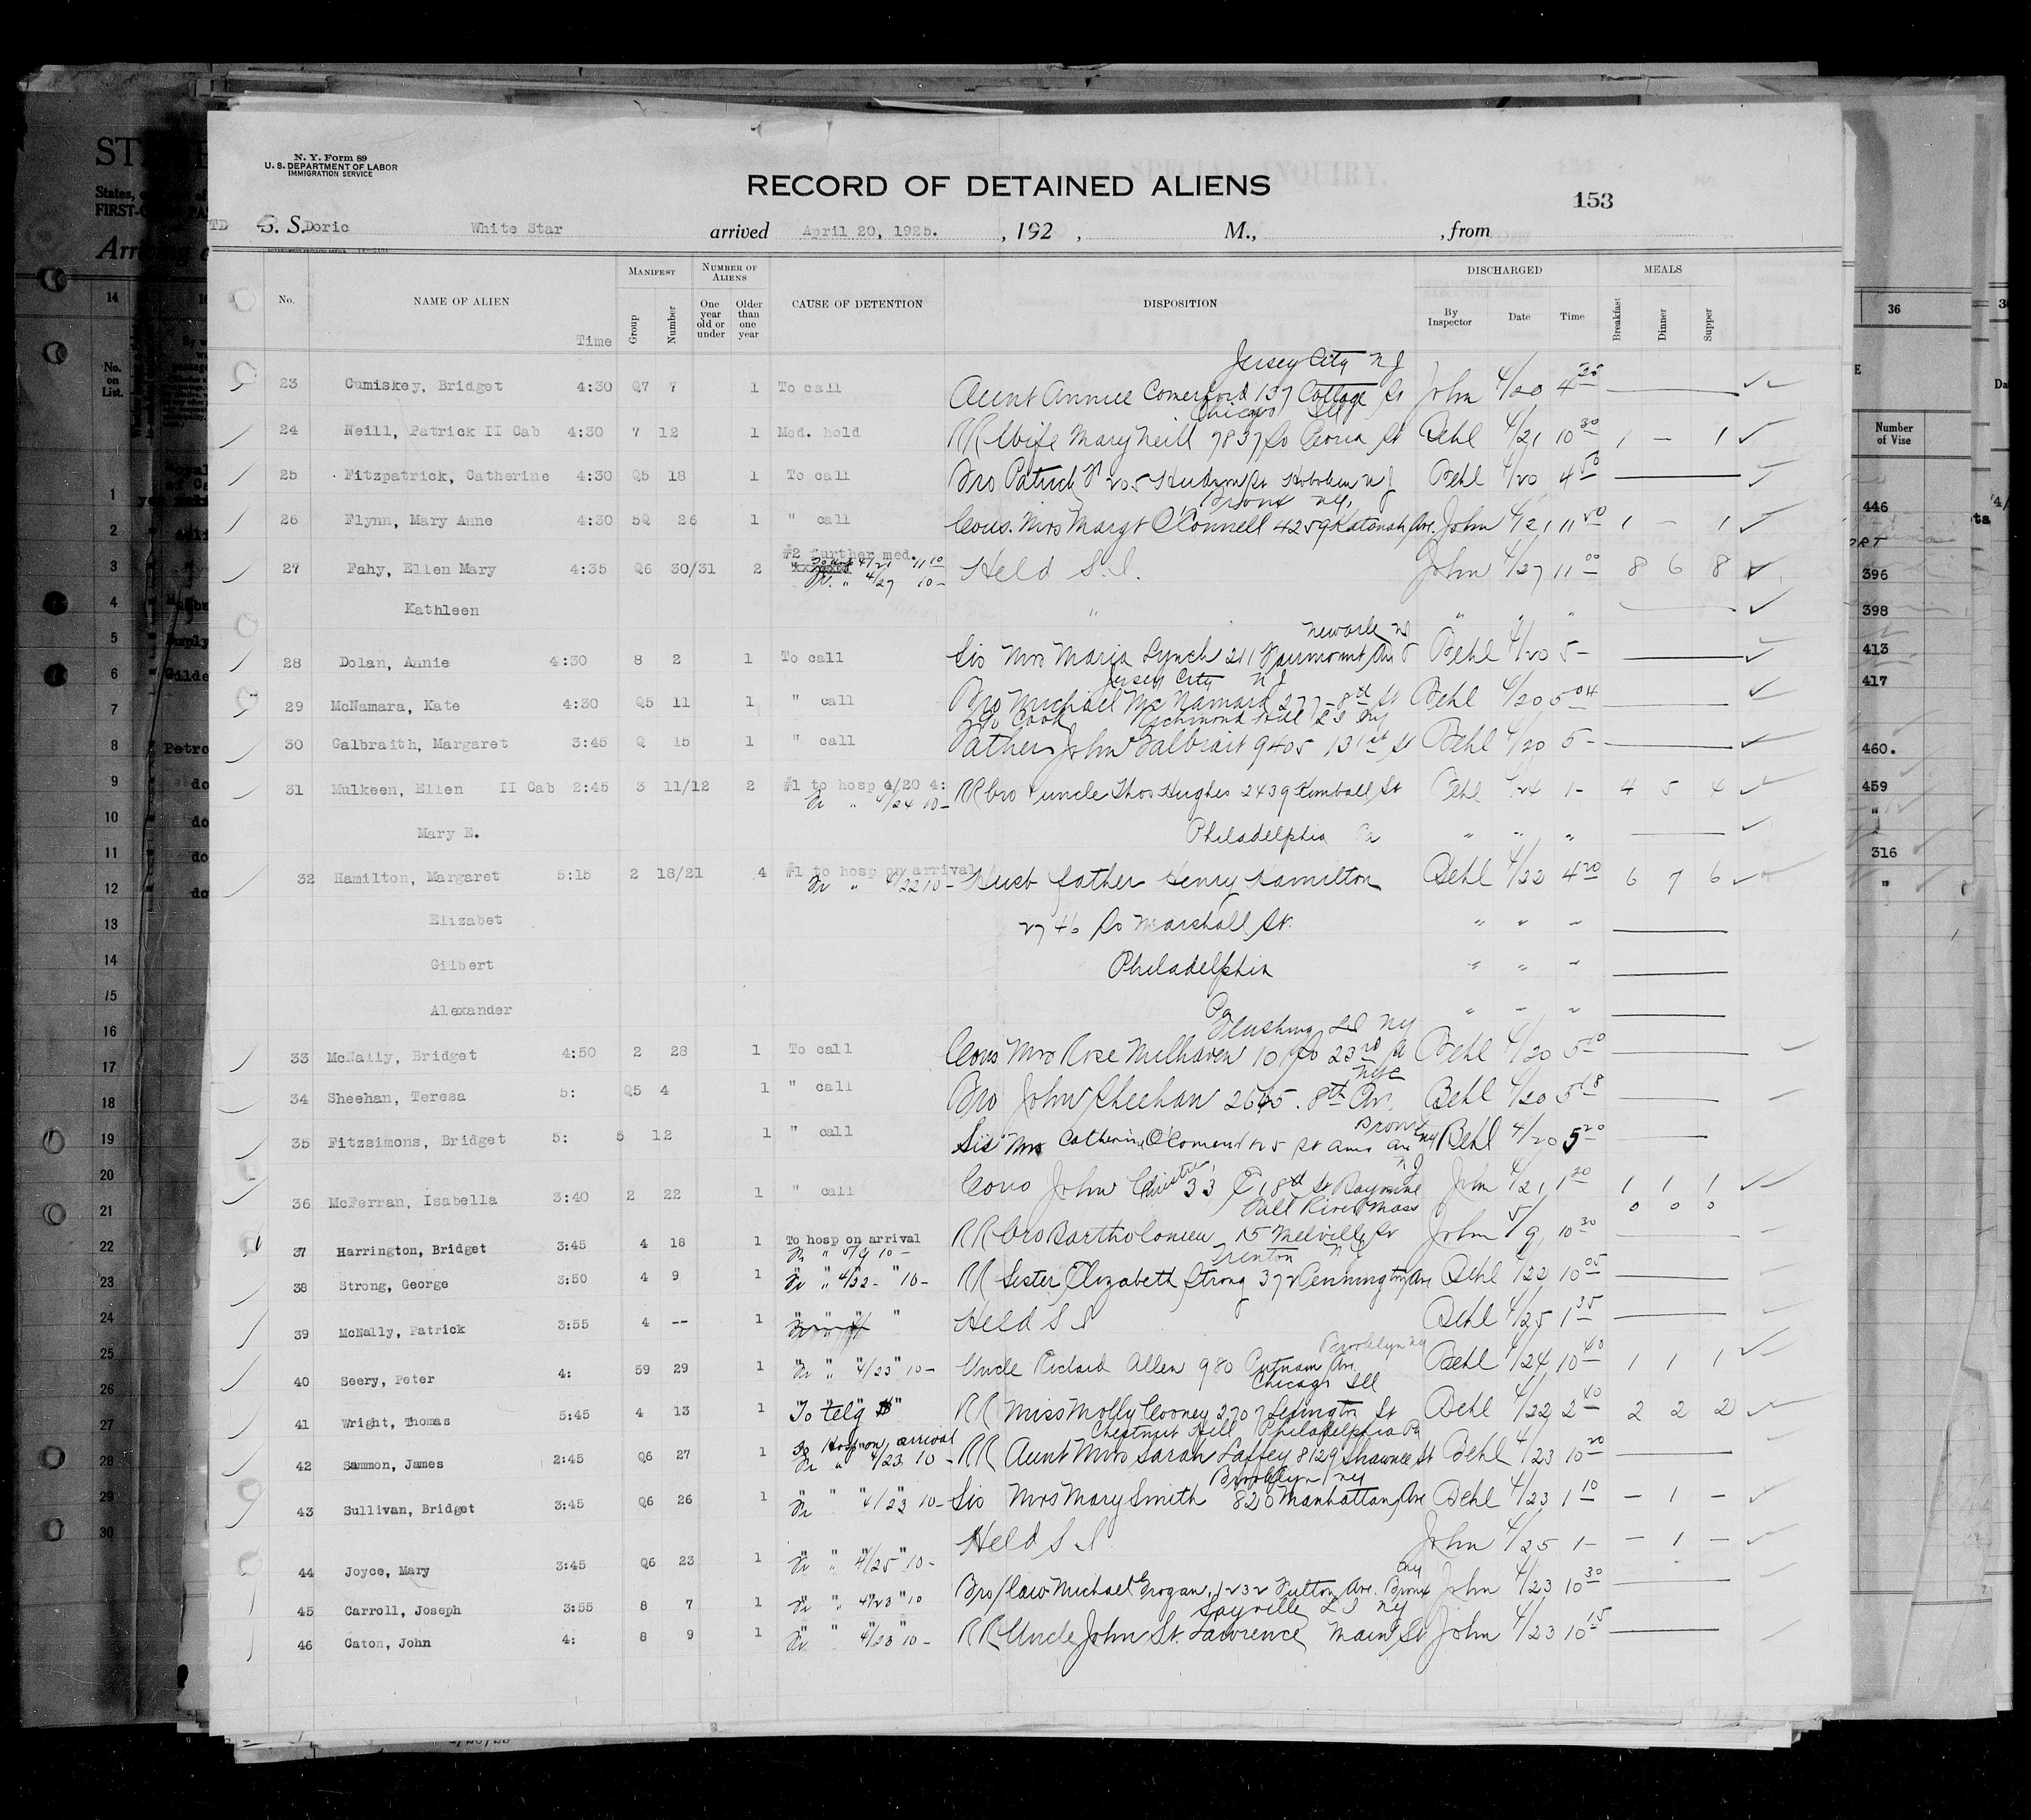 N. Y. Form 89
U. S. DEPARTMENT OF LABOR
IMMIGRATION SERVICE
RECORD OF DETAINED ALIENS
153
S. S. Doric White Star arrived April 20, 1925. , 192 , M., , from
No. NAME OF ALIEN Time MANIFEST Group Number NUMBER OF ALIENS One year old or under Older than one year CAUSE OF DETENTION DISPOSITION DISCHARGED By Inspector Date Time MEALS Breakfast Dinner Supper
Jersey City N J
23 Cumiskey, Bridget 4:30 Q7 7 1 To call Aunt Annie Comerford 137 Cottage St John 4/20 4 35
Chicago Ill
24 Neill, Patrick II Cab 4:30 7 12 1 Med. hold RR Wife Mary Neill 7837 So Peoria St Behl 4/21 10 30 1 — 1
25 Fitzpatrick, Catherine 4:30 Q5 18 1 To call Bro Patrick 205 Hudson St Hoboken N J Behl 4/20 4 50
Bronx NY.
26 Flynn, Mary Anne 4:30 5Q 26 1 " call Cous. Mrs Margt O'Connell 4259 Katonah Ave. John 4/21 11 50 1 — 1
#2 further med.
27 Fahy, Ellen Mary 4:35 Q6 30/31 2 Held S. I. John 4/27 11 00 8 6 8
" 4/27 10 —
Kathleen " " " "
Newark NJ
28 Dolan, Annie 4:30 8 2 1 To call Sis Mrs Maria Lynch 211 Fairmount Av Behl 4/20 5 —
Jersey City N J
29 McNamara, Kate 4:30 Q5 11 1 " call Bro Michael McNamara 277 - 8th St Behl 4/20 5 04
c/o Cook Richmond Hill L I NY
30 Galbraith, Margaret 3:45 Q 15 1 " call Father John Galbrait 9405 131st St Behl 4/20 5 —
31 Mulkeen, Ellen II Cab 2:45 3 11/12 2 #1 to hosp 4/20 4: RR bro uncle Thos Hughes 2439 Kimball St Behl 4/24 1 — 4 5 4
Fr " 4/24 10 —
Mary E. Philadelphia Pa " " "
32 Hamilton, Margaret 5:15 2 18/21 4 #1 to hosp on arrival Husb father Henry Hamilton Behl 4/22 4 20 6 7 6
Fr " 4/22 10 —
Elizabet 2746 So Marshall St. " " "
Gilbert Philadelphia " " "
Alexander Pa " " "
Flushing L I NY
33 McNally, Bridget 4:50 2 28 1 To call Cous Mrs Rose Mulhaven 10 So 23rd St Behl 4/20 5 10
NYC
34 Sheehan, Teresa 5: Q5 4 1 " call Bro John Sheehan 2645. 8th Av. Behl 4/20 5 18
Bronx NY
35 Fitzsimons, Bridget 5: 5 12 1 " call Sis Mrs Catherine St Anns Ave Behl 4/20 5 20
N J
36 McFerran, Isabella 3:40 2 22 1 " call Cous John Christie 33 E 18th St Bayonne John 4/21 1 20 1 1 1
Fall River Mass 0 0 0
37 Harrington, Bridget 3:45 4 18 1 To hosp on arrival RR bro Bartholomew 15 Melville St John 5/9 10 30
Fr " 5/9 10 —
Trenton N J
38 Strong, George 3:50 4 9 1 Fr " 4/22 - " 10 — RR Sister Elizabeth Strong 372 Pennington Ave Behl 4/22 10 05
39 McNally, Patrick 3:55 4 -- 1 " " " " Held S I Behl 4/25 1 35
Brooklyn NY
40 Seery, Peter 4: 59 29 1 Fr " 4/23 " 10 — Uncle Richard Allen 980 Putnam Ave. Behl 4/24 10 40 1 1 1
Chicago Ill
41 Wright, Thomas 5:45 4 13 1 To telg $ RR Miss Molly Cooney 2707 Lexington St Behl 4/22 2 40 2 2 2
Chestnut Hill Philadelphia Pa
42 Sammon, James 2:45 Q6 27 1 To Hosp on arrival RR Aunt Mrs Sarah Laffey 8129 Shawnee St Behl 4/23 10 20
Fr " 4/23 10 —
Brooklyn NY
43 Sullivan, Bridget 3:45 Q6 26 1 Fr " 4/23 10 — Sis Mrs Mary Smith 820 Manhattan Ave Behl 4/23 1 10 — 1 —
44 Joyce, Mary 3:45 Q6 23 1 Fr " 4/25 " 10 — Held S I. John 4/25 1 — — 1 —
NY
45 Carroll, Joseph 3:55 8 7 1 Fr " 4/23 " 10 Bro/law Michael Grogan, 1232 Fulton Ave. Bronx John 4/23 10 30
Sayville L I NY
46 Caton, John 4: 8 9 1 Fr " 4/23 " 10 — RR Uncle John St. Lawrence Main St John 4/23 10 15
36
Number of Vise
446
396
398
413
417
460.
459
"
316
"
States,
FIRST-C
14
No. on List.
1
2
3
4
5
6
7
8 Petro
9 do
10 do
11 do
12 do
13
14
15
16
17
18
19
20
21
22
23
24
25
26
27
28
29
30